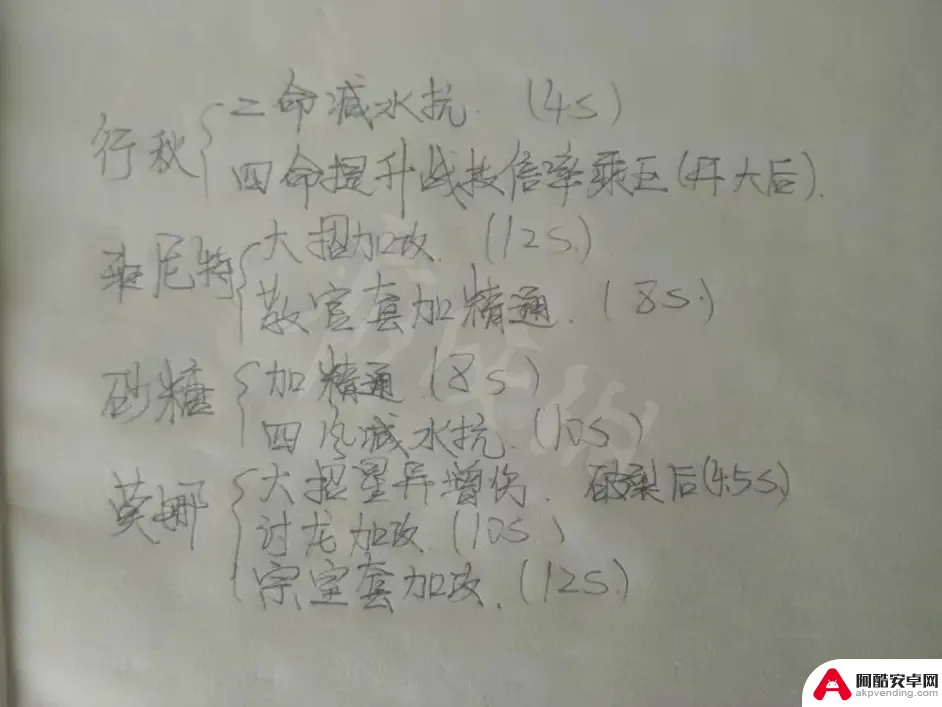 行秋
二命减水抗. (4s)
四命提升战技倍率乘区(开大后).
班尼特
大招加攻. (12s.)
教官套加精通. (8s.)
砂糖
加精通 (8s)
四风减水抗. (10s)
莫娜
大招星异增伤. 破裂后(4.5s.)
讨龙加攻. (10s.)
宗室套加攻. (12s.)
阿酷安卓网
akpvending.com